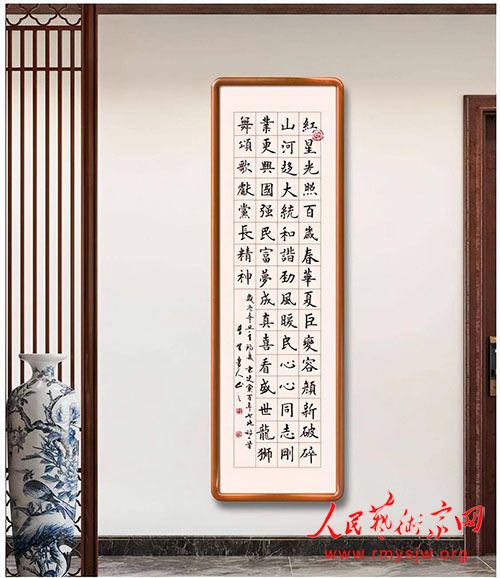 紅星光照百歲春華夏巨變容顔新破碎
山河趍大統和諧勁風暖民心心同志剛
業更興國强民富夢成真喜看盛世龍獅
舞頌歌獻黨長精神
人民藝術家网
www.rmysjw.org